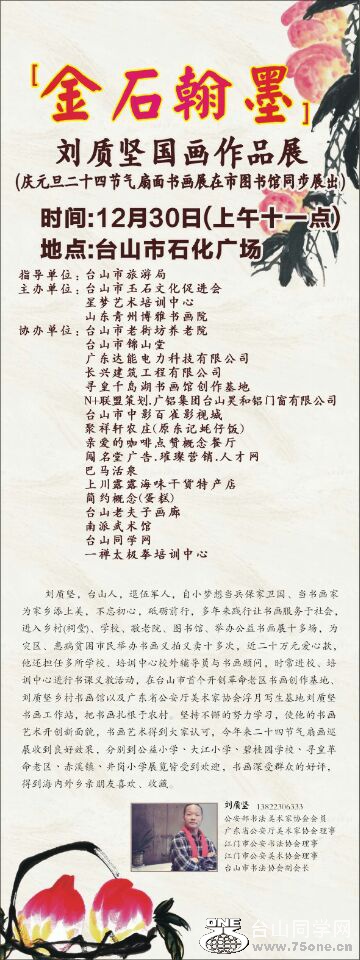 [金石翰墨]
刘质坚国画作品展
(庆元旦二十四节气扇面书画展在市图书馆同步展出)
时间:12月30日(上午十一点)
地点:台山市石化广场
指导单位:台山市旅游局
主办单位:台山市玉石文化促进会
星梦艺术培训中心
山东青州博雅书画院
协办单位:台山市老街坊养老院
台山市锦山堂
广东达能电力科技有限公司
长兴建筑工程有限公司
寻皇千岛湖书画馆创作基地
N+联盟策划.广铝集团台山昊和铝门窗有限公司
台山市中影百雀影视城
聚祥轩农庄(原东记蚝仔饭)
亲爱的咖啡点赞概念餐厅
闻名堂广告.璀璨营销.人才网
巴马活泉
上川露露海味干货特产店
简约概念(蛋糕)
台山老夫子画廊
南派武术馆
台山同学网
一禅太极拳培训中心
刘质坚，台山人，退伍军人，自小梦想当兵保家卫国、当书画家
为家乡添上美，不忘初心，砥砺前行，多年来践行让书画服务于社会，
进入乡村(祠堂)、学校、敬老院、图书馆、举办公益画展十多场，为
灾区、患病贫困市民举办书画义拍义卖十多次，近二十万元爱心款，
他还担任多所学校、培训中心校外辅导员与书画顾问，时常进校、培
训中心进行书课义教活动，在台山市首个开创革命老区书画创作基地、
刘质坚乡村书画馆以及广东省公安厅美术家协会浮月写生基地刘质坚
书画工作站，把书画扎根于农村。坚持不懈的努力学习，使他的书画
艺术开创新面貌，书画艺术得到大家认可，今年来二十四节气扇画巡
展收到良好效果，分别到公益小学、大江小学、碧桂园学校、寻皇革
命老区、赤溪镇、井岗小学展览皆受到欢迎，书画深受群众的好评，
得到海内外乡亲朋友喜欢、收藏。
刘质坚 13822306333
公安部书法美术家协会会员
广东省公安厅美术家协会理事
江门市公安书法协会理事
江门市公安美术协会理事
台山市书法协会副会长
ONE
台山同学网
www.75one.cn